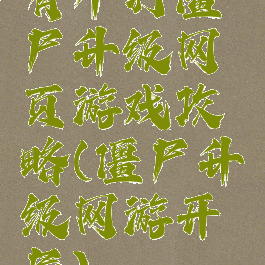 僵
尸升级网
页游戏攻
略(僵尸升
级网游开
)